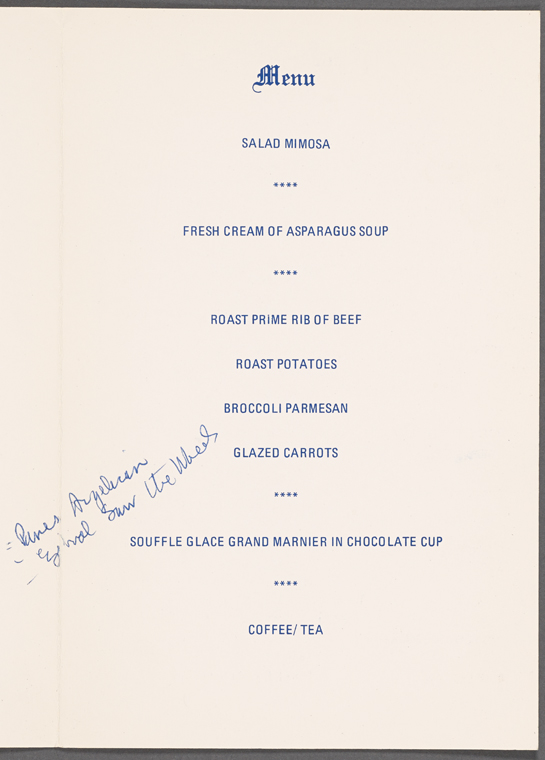 Menu
SALAD MIMOSA
****
FRESH CREAM OF ASPARAGUS SOUP
****
ROAST PRIME RIB OF BEEF
ROAST POTATOES
BROCCOLI PARMESAN
GLAZED CARROTS
****
SOUFFLE GLACE GRAND MARNIER IN CHOCOLATE CUP
****
COFFEE/ TEA
Panes Angelican
Saw the Wheel